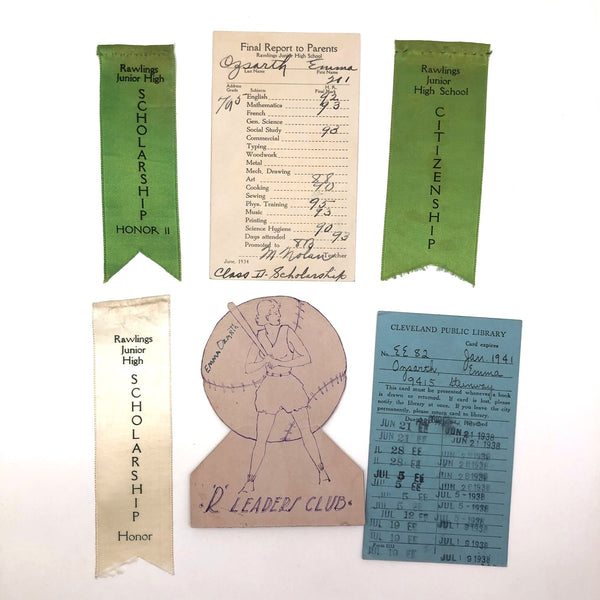 Rawlings
Junior High
SCHOLARSHIP
HONOR II
Final Report to Parents
Rawlings Junior High School
Ozsarth Emma
Last Name First Name
201
Address Subjects H. R.
Grade Final Mark
7A95
English 92
Mathematics 93
French
Gen. Science
Social Study 93
Commercial
Typing
Woodwork
Metal
Mech. Drawing
Art 88
Cooking 90
Sewing
Phys. Training 95
Music 93
Printing
Science Hygiene 90
Days attended 93
Promoted to 8B
M. Nolan Teacher
June, 1934
Class II - Scholarship
Rawlings
Junior
High School
CITIZENSHIP
Rawlings
Junior
High
SCHOLARSHIP
Honor
EMMA OZSARTH
"R" LEADERS CLUB
CLEVELAND PUBLIC LIBRARY
Card expires
No. EE 82 Jan. 1941
Ozsarth, Emma
9415
This card must be presented whenever a book
is drawn or returned. If card is lost, please
notify the library at once. If you leave the city
permanently, please return card to library.
Returned
JUN 21 EE JUN 21 1938
JUN 21 EE JUN 21 1938
JUL 28 EE JUN 28 1938
JUL 28 EE JUN 28 1938
JUL 5 EE JUN 28 1938
JUL 5 EE JUL 5 - 1938
JUL 5 EE JUL 5 - 1938
JUL 12 EE JUL 5 - 1938
JUL 19 EE JUL 19 1938
JUL 19 EE JUL 19 1938